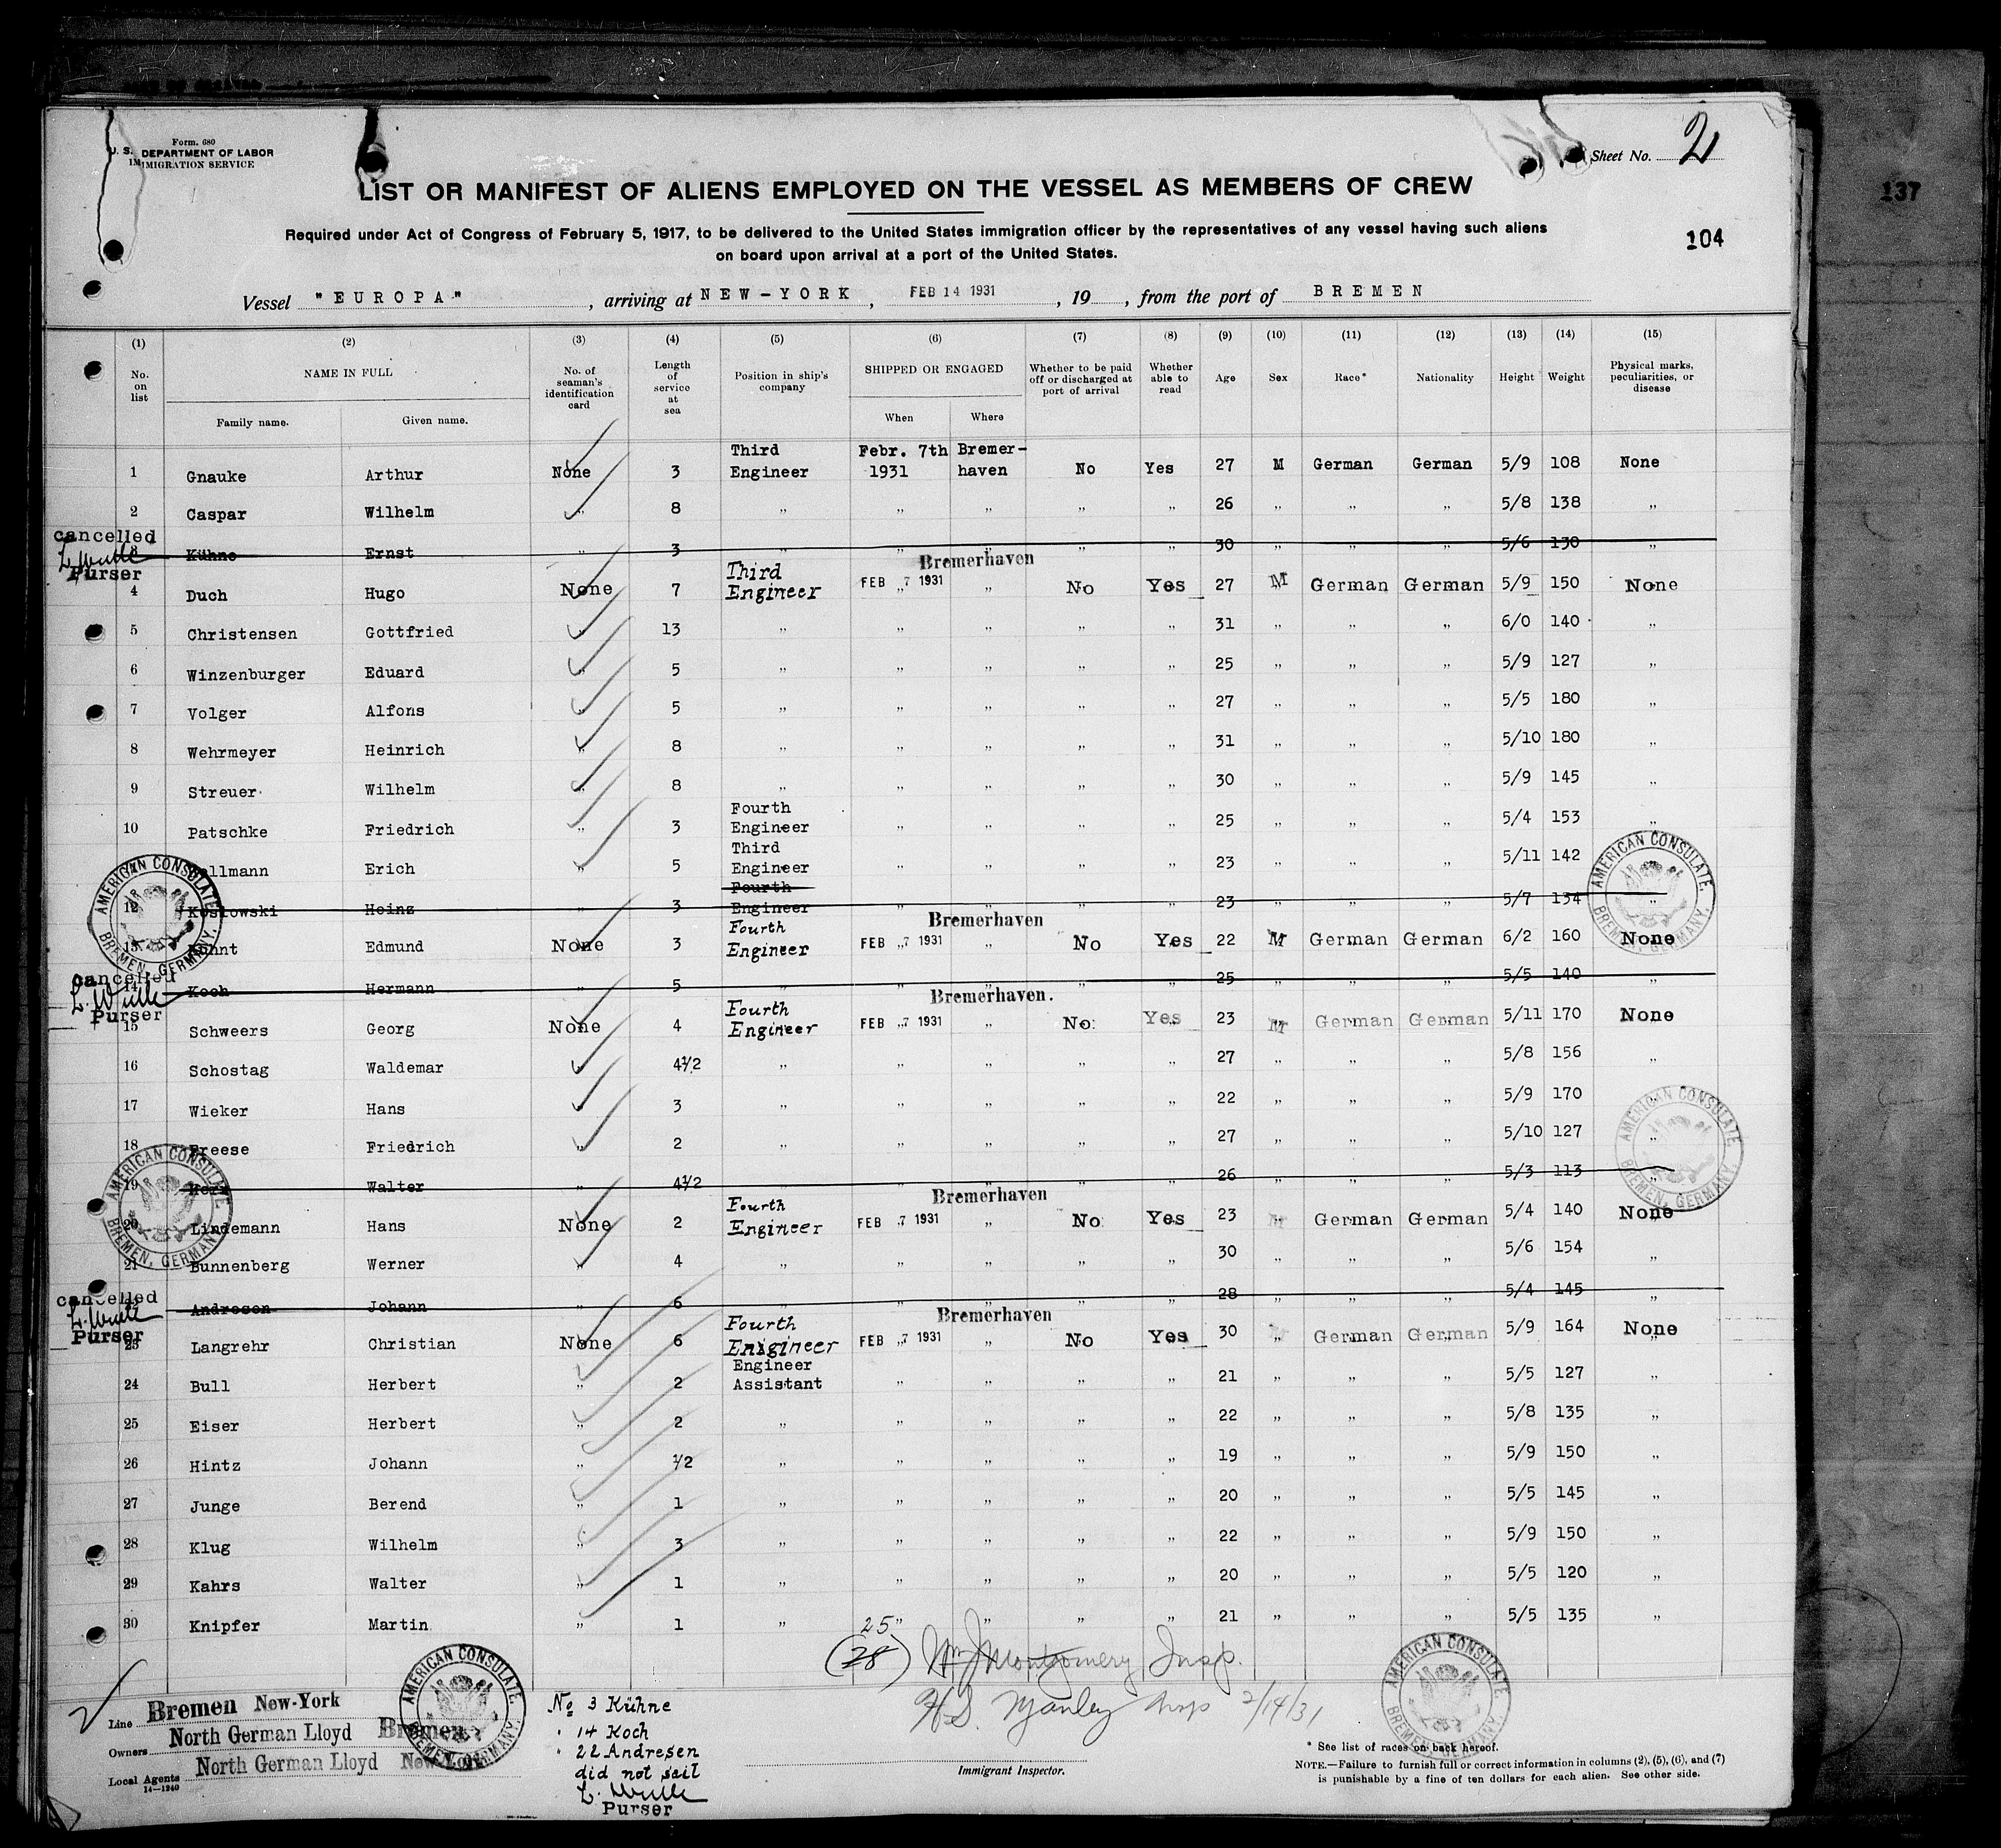 Form. 680
U. S. DEPARTMENT OF LABOR
IMMIGRATION SERVICE
Sheet No. 2
137
LIST OR MANIFEST OF ALIENS EMPLOYED ON THE VESSEL AS MEMBERS OF CREW
Required under Act of Congress of February 5, 1917, to be delivered to the United States immigration officer by the representatives of any vessel having such aliens
on board upon arrival at a port of the United States.
104
Vessel "EUROPA" , arriving at NEW-YORK , FEB 14 1931 , 19 , from the port of BREMEN
(1) (2) (3) (4) (5) (6) (7) (8) (9) (10) (11) (12) (13) (14) (15)
No. on list NAME IN FULL Family name. Given name. No. of seaman's identification card Length of service at sea Position in ship's company SHIPPED OR ENGAGED When Where Whether to be paid off or discharged at port of arrival Whether able to read Age Sex Race* Nationality Height Weight Physical marks, peculiarities, or disease
1 Gnauke Arthur None 3 Third Engineer Febr. 7th 1931 Bremer-haven No Yes 27 M German German 5/9 108 None
2 Caspar Wilhelm " 8 " " " " " 26 " " " 5/8 138 "
cancelled
3 Kühne Ernst " 3 " " " " " 30 " " " 5/6 130 "
Purser
4 Duch Hugo None 7 Third Engineer FEB 7 1931 Bremerhaven " No Yes 27 M German German 5/9 150 None
5 Christensen Gottfried " 13 " " " " " 31 " " " 6/0 140 "
6 Winzenburger Eduard " 5 " " " " " 25 " " " 5/9 127 "
7 Volger Alfons " 5 " " " " " 27 " " " 5/5 180 "
8 Wehrmeyer Heinrich " 8 " " " " " 31 " " " 5/10 180 "
9 Streuer Wilhelm " 8 " " " " " 30 " " " 5/9 145 "
10 Patschke Friedrich " 3 Fourth Engineer " " " " 25 " " " 5/4 153 "
Erich " 5 Third Engineer " " " " 23 " " " 5/11 142 "
12 Koslowski Heinz " 3 Fourth Engineer " " " " 23 " " " 5/7 134 "
13 Edmund None 3 Fourth Engineer FEB 7 1931 Bremerhaven " No Yes 22 M German German 6/2 160 None
cancelled
14 Koch Hermann " 5 " " " " " 25 " " " 5/5 140 "
Purser
15 Schweers Georg None 4 Fourth Engineer FEB 7 1931 Bremerhaven. " No Yes 23 M German German 5/11 170 None
16 Schostag Waldemar " 4½ " " " " " 27 " " " 5/8 156 "
17 Wieker Hans " 3 " " " " " 22 " " " 5/9 170 "
18 Freese Friedrich " 2 " " " " " 27 " " " 5/10 127 "
19 Walter " 4½ " " " " " 26 " " " 5/3 113 "
20 Lindemann Hans None 2 Fourth Engineer FEB 7 1931 Bremerhaven " No Yes 23 M German German 5/4 140 None
21 Bunnenberg Werner " 4 " " " " " 30 " " " 5/6 154 "
cancelled
22 Andresen Johann " 6 " " " " " 28 " " " 5/4 145 "
Purser
23 Langrehr Christian None 6 Fourth Engineer FEB 7 1931 Bremerhaven " No Yes 30 " German German 5/9 164 None
24 Bull Herbert " 2 Engineer Assistant " " " " 21 " " " 5/5 127 "
25 Eiser Herbert " 2 " " " " " 22 " " " 5/8 135 "
26 Hintz Johann " ½ " " " " " 19 " " " 5/9 150 "
27 Junge Berend " 1 " " " " " 20 " " " 5/5 145 "
28 Klug Wilhelm " 3 " " " " " 22 " " " 5/9 150 "
29 Kahrs Walter " 1 " " " " " 20 " " " 5/5 120 "
30 Knipfer Martin " 1 " " " " " 21 " " " 5/5 135 "
25
(28) Wm J Montgomery Insp.
H.S. Manley Insp 2/14/31
AMERICAN CONSULATE, BREMEN, GERMANY.
AMERICAN CONSULATE, BREMEN, GERMANY.
AMERICAN CONSULATE, BREMEN, GERMANY.
AMERICAN CONSULATE, BREMEN, GERMANY.
AMERICAN CONSULATE, BREMEN, GERMANY.
AMERICAN CONSULATE, BREMEN, GERMANY.
Line Bremen New-York
Owners North German Lloyd Bremen
Local Agents North German Lloyd New-York
14—1240
No 3 Kühne
" 14 Koch
" 22 Andresen
did not sail
Purser
Immigrant Inspector.
* See list of races on back hereof.
NOTE.—Failure to furnish full or correct information in columns (2), (5), (6), and (7)
is punishable by a fine of ten dollars for each alien. See other side.